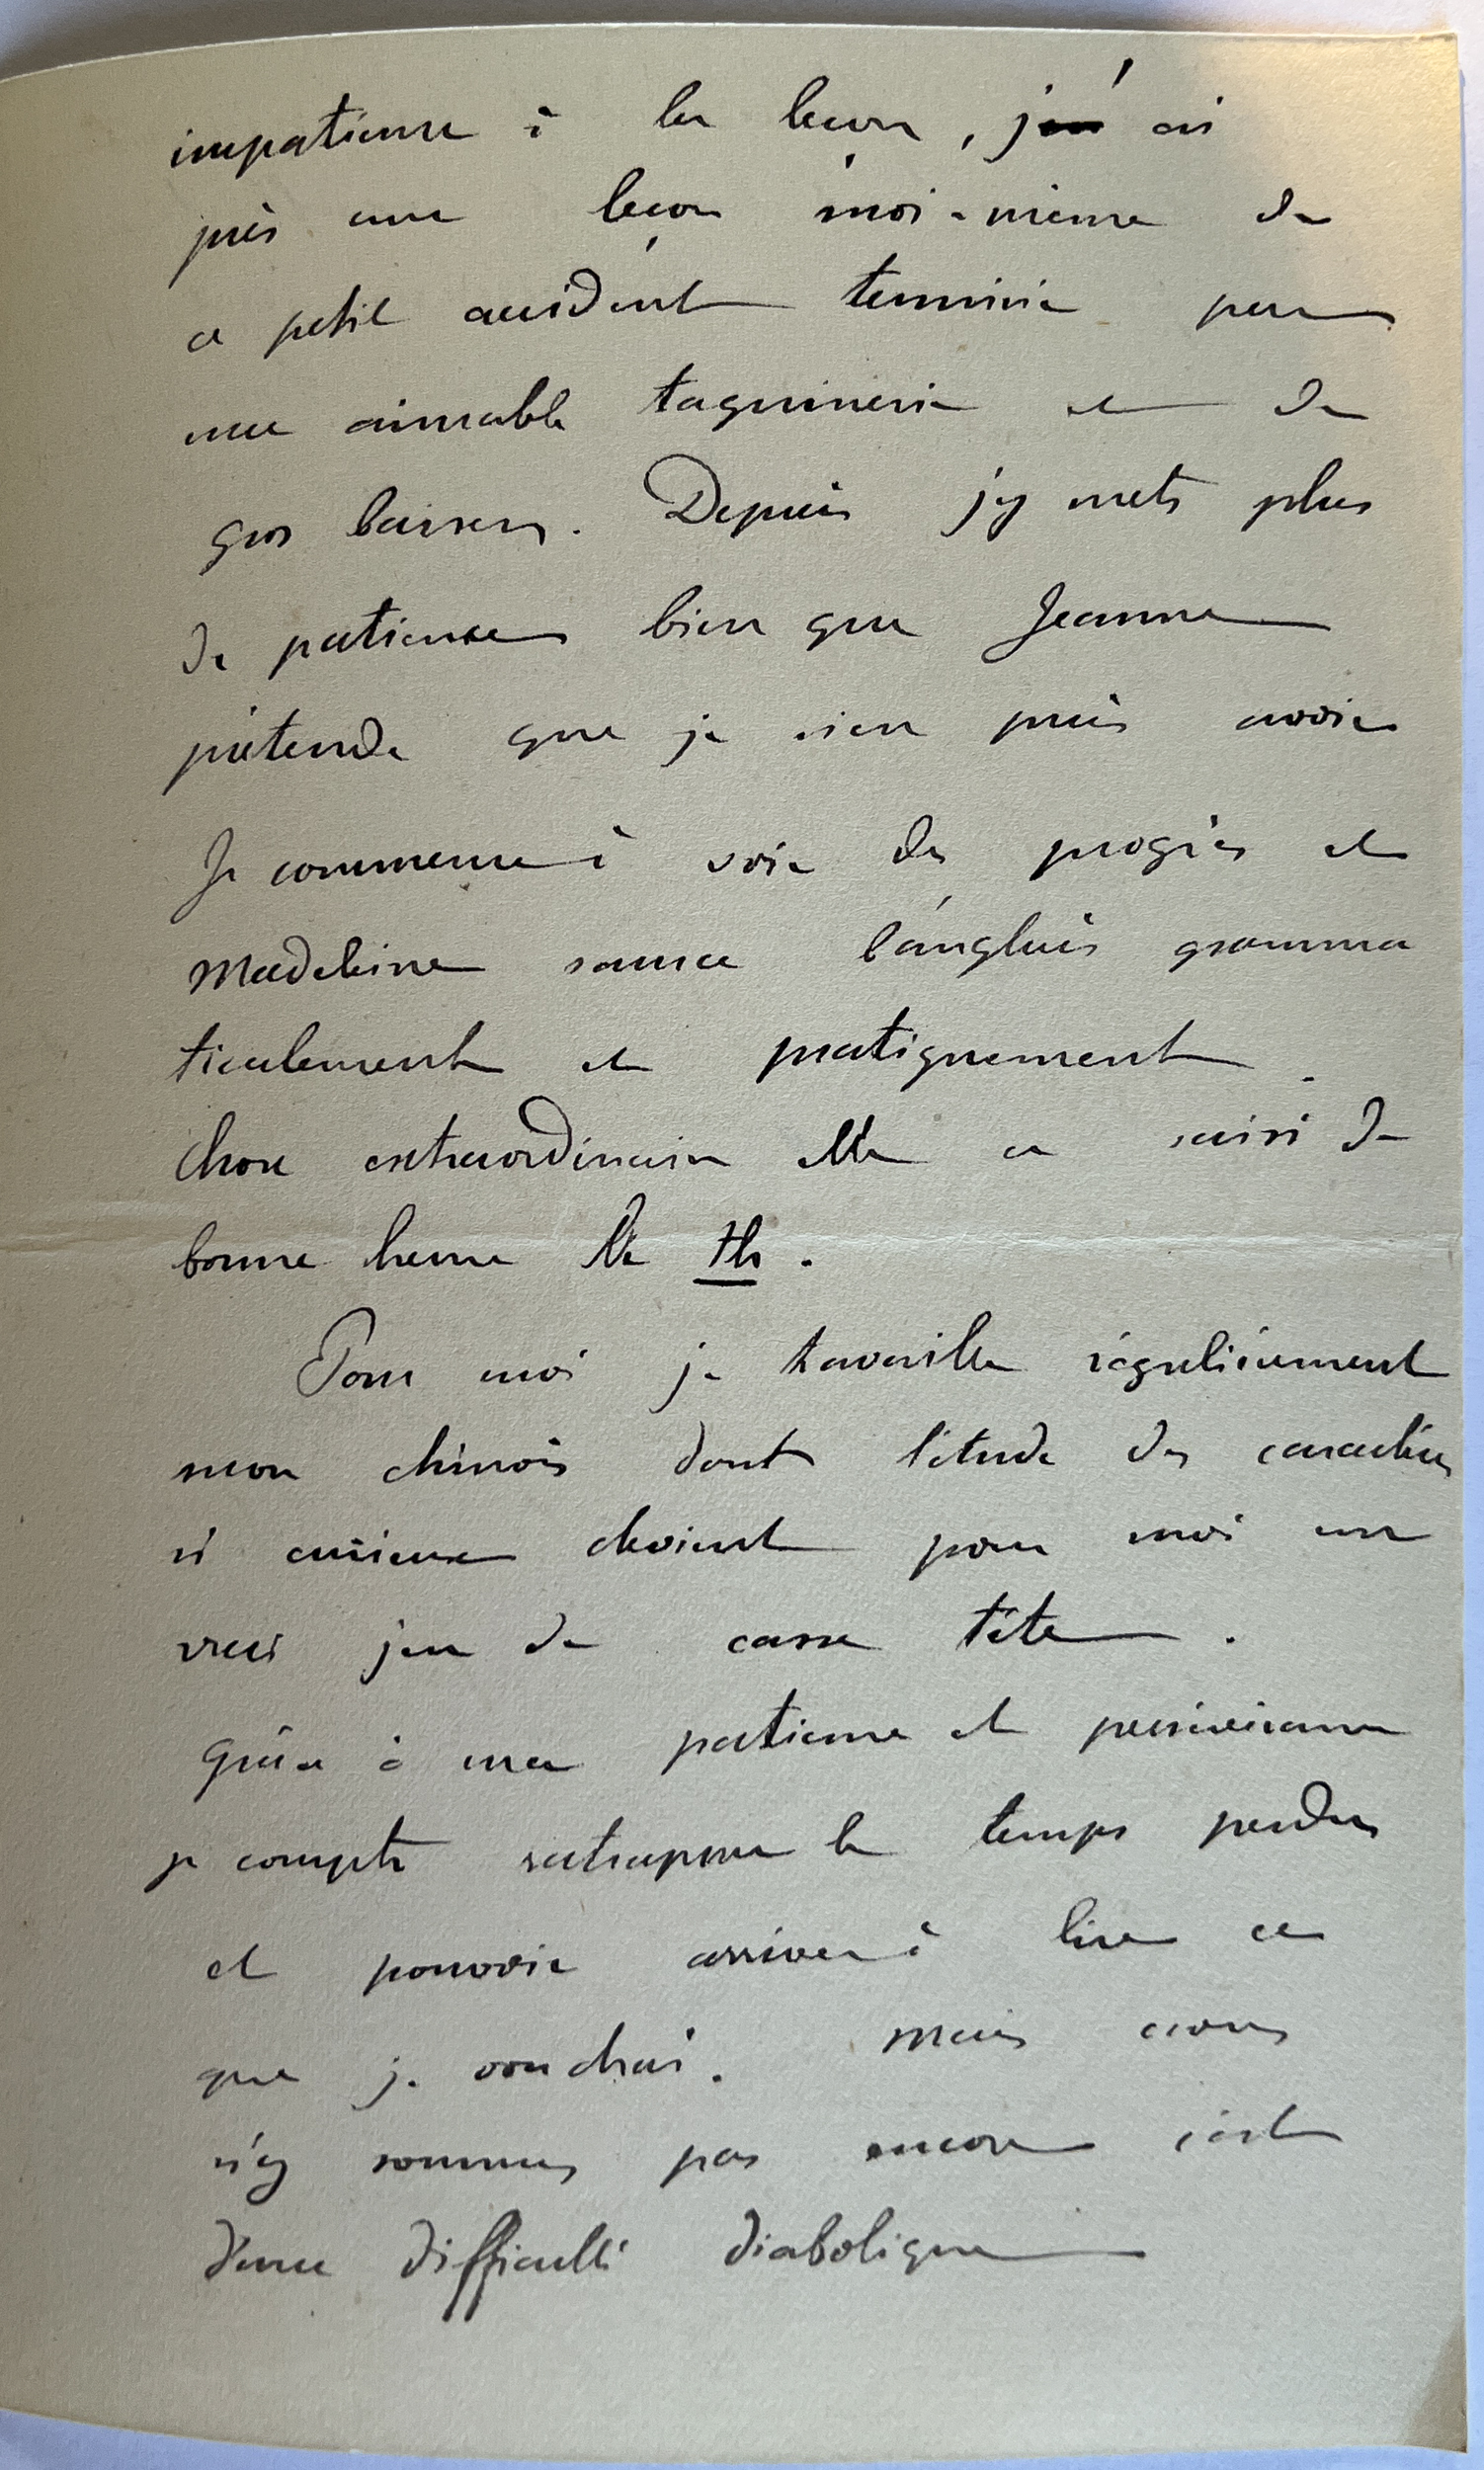 impatience à la leçon, j'ai
pris une leçon moi-même de
ce petit accident terminé par
une aimable taquinerie et de
gros baisers. Depuis j'y mets plus
de patience bien que Jeanne
prétende que je n'en puis avoir
Je commence à voir des progrès et
Madeleine saura l'anglais gramma
ticalement et pratiquement.
chose extraordinaire elle a saisi de
bonne heure le th.
Pour moi je travaille régulièrement
mon chinois dont l'étude des caractères
si curieux devient pour moi un
vrai jeu de casse tête.
Grâce à ma patience et persévérance
je compte rattraper le temps perdu
et pouvoir arriver à lire ce
que je voudrai. Mais nous
n'y sommes pas encore c'est
d'une difficulté diabolique